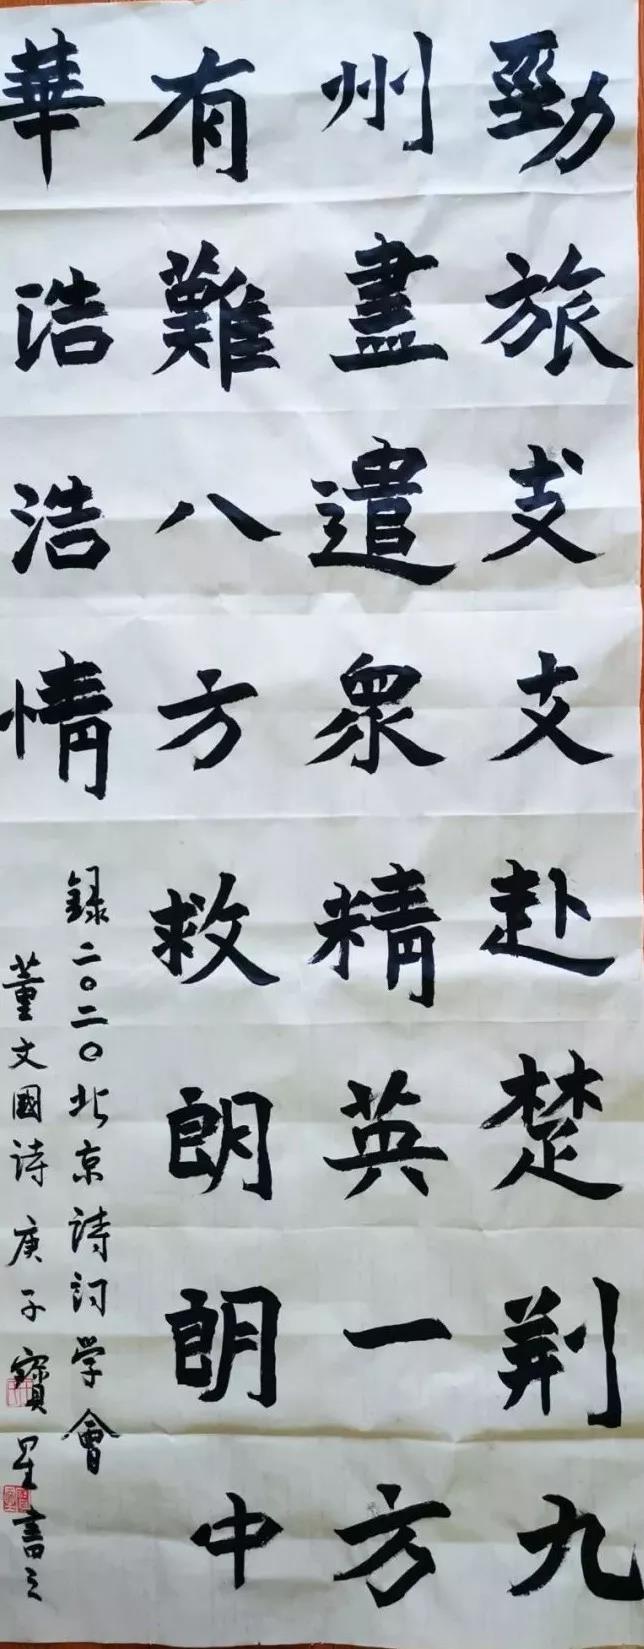 勁旅支支赴楚荆九
州盡遣眾精英一方
有難八方救朗朗中
華浩浩情
録二〇二〇北京詩詞学會
董文國詩庚子寶星書之